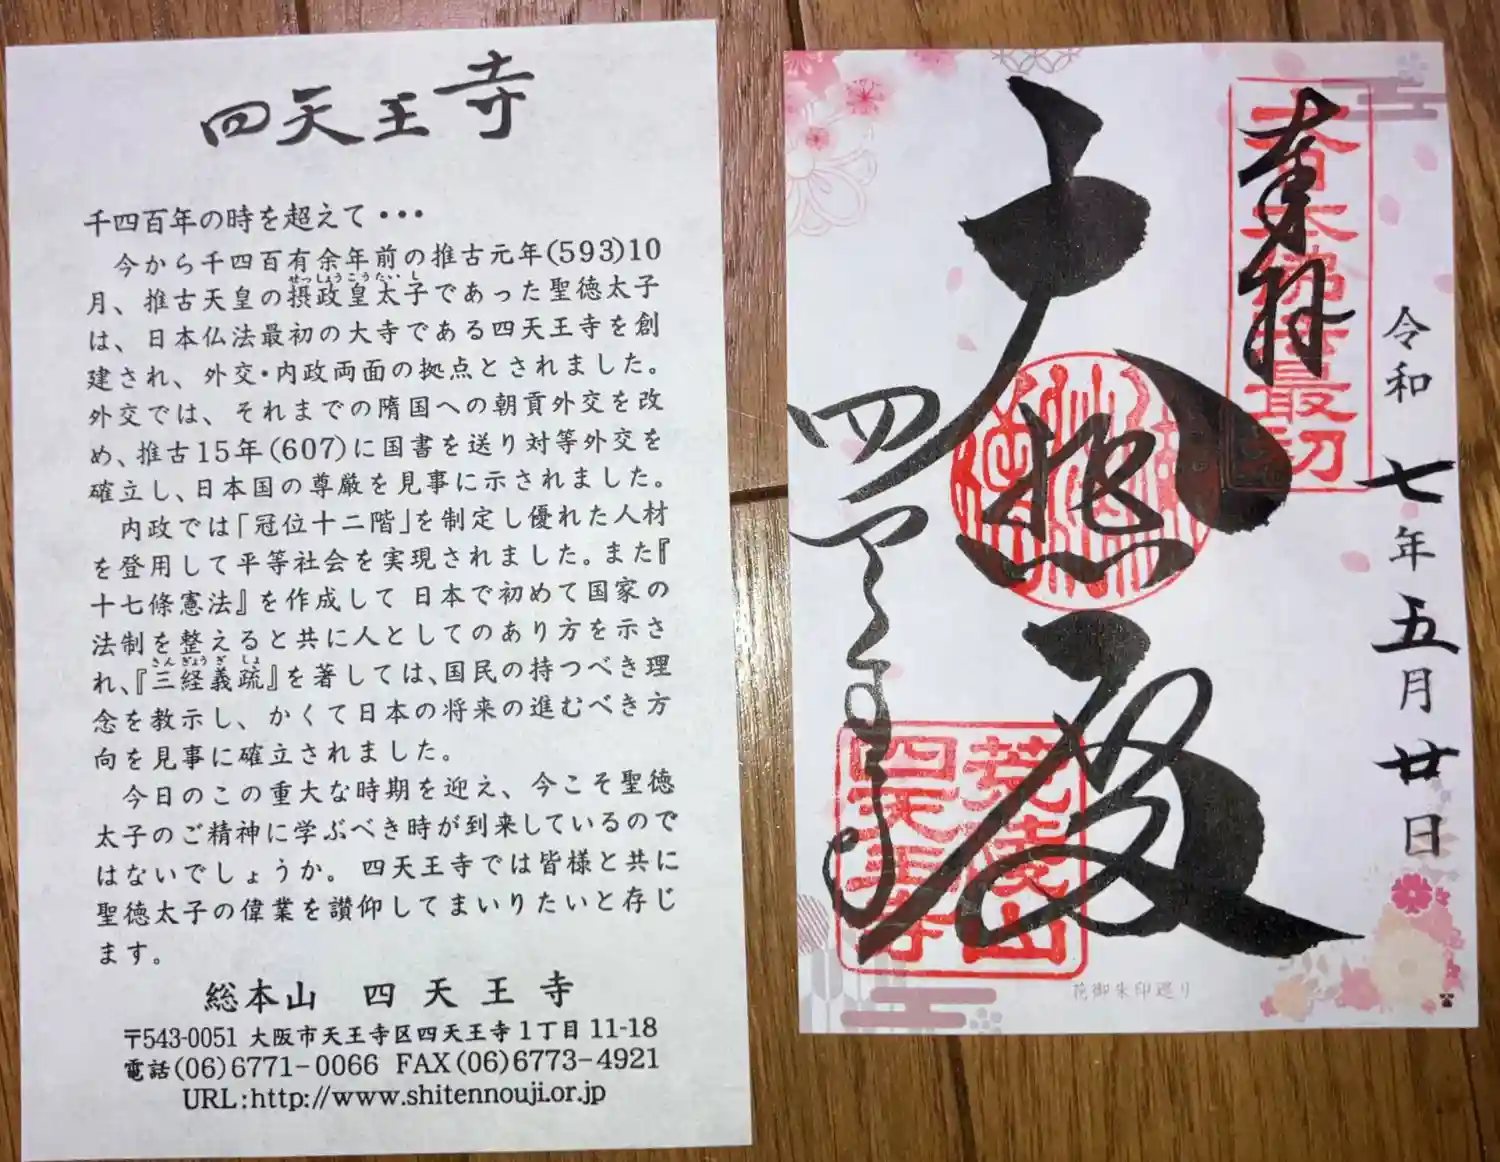 四天王寺
千四百年の時を超えて・・・
今から千四百有余年前の推古元年(593)10
せっしょうこうたいし
月、推古天皇の摂政皇太子であった聖徳太子
は、日本仏法最初の大寺である四天王寺を創
建され、外交・内政両面の拠点とされました。
外交では、それまでの隋国への朝貢外交を改
め、推古15年(607)に国書を送り対等外交を
確立し、日本国の尊厳を見事に示されました。
内政では「冠位十二階」を制定し優れた人材
を登用して平等社会を実現されました。また『
十七條憲法』を作成して日本で初めて国家の
法制を整えると共に人としてのあり方を示さ
さんぎょうぎしょ
れ、『三経義疏』を著しては、国民の持つべき理
念を教示し、かくて日本の将来の進むべき方
向を見事に確立されました。
今日のこの重大な時期を迎え、今こそ聖徳
太子のご精神に学ぶべき時が到来しているので
はないでしょうか。四天王寺では皆様と共に
聖徳太子の偉業を讃仰してまいりたいと存じ
ます。
総本山 四天王寺
〒543-0051 大阪市天王寺区四天王寺1丁目11-18
電話(06)6771-0066 FAX(06)6773-4921
URL:http://www.shitennouji.or.jp
令和七年五月廿日
奉拝
大日本佛法最初
大悲殿
四天王寺
荒陵山
四天王寺
花御朱印巡り